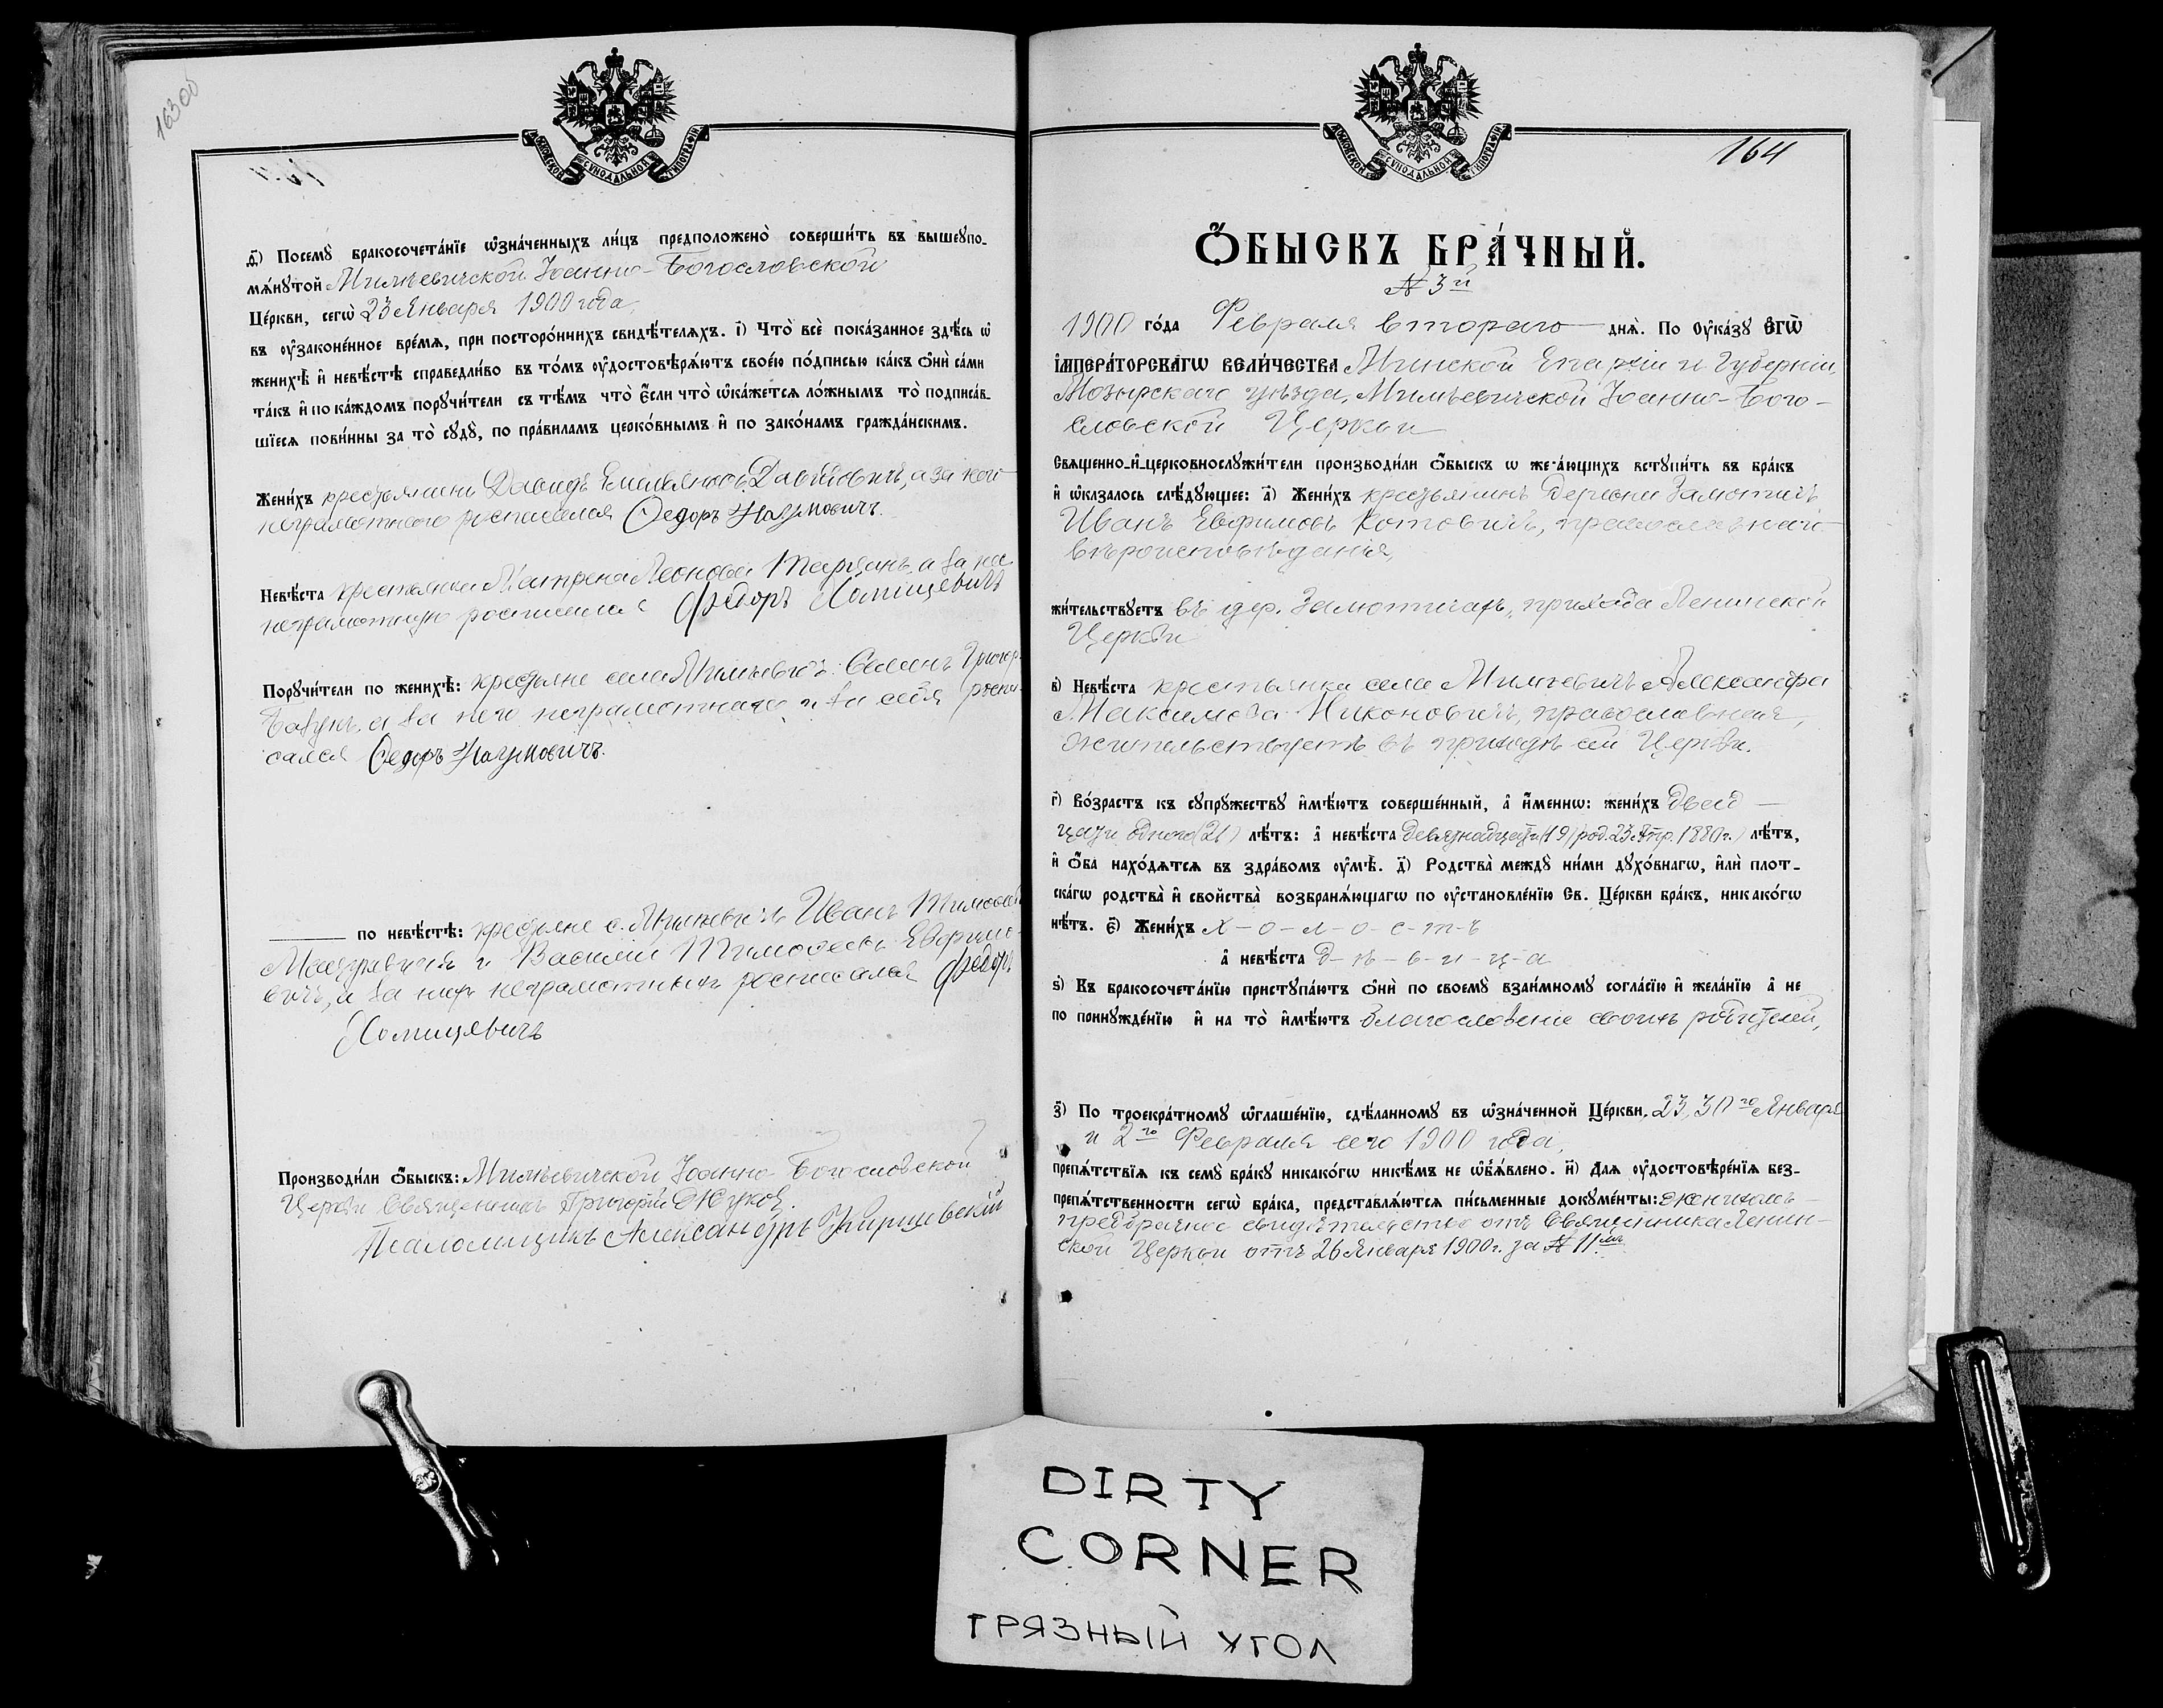 163об
МОСКОВСКОЙ СѴНОДАЛЬНОЙ ТИПОГРАФІИ
д҃) Посемꙋ̀ бракосочета́нїе ѡ҆зна́ченныхъ ли́цъ предположено̀ соверши́ть въ вышеꙋпо-
мѧ́нꙋтой Милѣевичской Іоанно-Богословской
Це́ркви, сегѡ̀ 23 Января 1900 года,
въ ᲂу҆зако́не́нное вре́мѧ, при посторо́ннихъ свидѣ́телѧхъ. і҃) Что̀ всѐ пока́занное здѣ́сь ѡ҆
женихѣ̀ и҆ невѣ́стѣ справедли́во въ то́мъ ᲂу҆достовѣрѧ́ютъ свое́ю по́дписью ка́къ ѻ҆нѝ са́ми
та́къ и҆ по ка́ждомъ порꙋчи́тели съ тѣ́мъ что̀ є҆́сли что̀ ѡ҆ка́жетсѧ ло́жнымъ то̀ подписа́в-
шїесѧ пови́нны за то̀ сꙋдꙋ̀, по пра́виламъ церко́внымъ и҆ по зако́намъ гражда́нскимъ.
Жени́хъ крестьянинъ Давидъ Емельяновъ Давидовичъ, а за него
неграмотного росписался Ѳедоръ Наумовичъ
Невѣ́ста крестьянка Матрена Леонова а за нее
неграмотную росписался Ѳедоръ Хомицевичъ
Порꙋчи́тели по женихѣ̀: крестьяне села Милѣевичъ Семенъ Григор.
а за него неграмотнаго и за себя роспи-
сался Ѳедоръ Наумовичъ.
по невѣ́стѣ: крестьяне с. Милѣевичъ Иванъ Тимоѳеевъ
и Василій Тимоѳеевъ Евфимо-
вичъ, а за нихъ неграмотныхъ росписался Ѳедоръ
Хомицевичъ
Производи́ли ѻ҆́быскъ: Милѣевичской Іоанно-Богословской
Церкви Священникъ Григорій
Псаломщикъ Александръ
МОСКОВСКОЙ СѴНОДАЛЬНОЙ ТИПОГРАФІИ
164
Ѻ҆́БЫСКЪ БРА́ЧНЫЙ.
№ 3й
1900 го́да Февраля втораго днѧ̀. По ᲂу҆ка́зꙋ Є҆ГѠ̀
І҆МПЕРА́ТОРСКАГѠ ВЕЛИ́ЧЕСТВА Минской Епархіи и Губерніи,
Мозырскаго уѣзда, Милѣевичской Іоанно-Бого-
словской Церкви
Свѧщенно-и҆-церковнослꙋжи́тели производи́ли ѻ҆́быскъ ѡ жела́ющихъ встꙋпи́ть въ бра́къ
и҆ ѡ҆каза́лось слѣ́дꙋющее: а҃) Жени́хъ крестьянинъ деревни Замошичъ
Иванъ Евфимовъ Котовичъ, православнаго
вѣроисповѣданія,
жи́тельствꙋетъ въ дер. Замошичахъ, прихода Ленинской
Церкви
в҃) Невѣ́ста крестьянка села Милѣевичъ Александра
Максимова Никоновичъ, православная,
жительствуетъ въ приходѣ сей Церкви.
г҃) Во́зрастъ къ сꙋпрꙋ́жествꙋ и҆мѣ́ютъ соверше́нный, а҆ и҆́меннѡ: жени́хъ двад-
цати одного (21) лѣ́тъ: а҆ невѣ́ста девятнадцати (19) (род. 23 Апр. 1880 г.) лѣ́тъ,
и҆ ѻ҆́ба нахо́дѧтсѧ въ здра́вомъ ᲂу҆мѣ̀. д҃) Родства̀ междꙋ̀ ни́ми дꙋхо́внагѡ, и҆лѝ плот-
ска́гѡ родства̀ и҆ сво́йства̀ возбранѧ́ющагѡ по ᲂу҆становле́нїю Св. Це́ркви бра́къ, никако́гѡ
нѣ́тъ. є҃) Жени́хъ х-о-л-о-с-т-ъ
а҆ невѣ́ста д-ѣ-в-и-ц-а
ѕ҃) Къ бракосочета́нїю пристꙋпа́ютъ ѻ҆нѝ по своемꙋ̀ взаи́мномꙋ согла́сїю и҆ жела́нїю а҆ не
по принꙋжде́нїю и҆ на то̀ и҆мѣ́ютъ благословеніе своихъ родителей,
з҃) По троекра́тномꙋ ѡ҆глаше́нїю, сдѣ́ланномꙋ въ ѡ҆зна́ченной Це́ркви, 23, 30го Января
и 2го Февраля сего 1900 года,
препѧ́тствїѧ къ семꙋ̀ бра́кꙋ никако́гѡ никѣ́мъ не ѡ҆б̾ѧ́влено. и҃) Длѧ ᲂу҆достовѣре́нїѧ без-
препѧ́тственности сегѡ̀ бра́ка, представлѧ́ютсѧ пи́сьменные докꙋме́нты: женихомъ
предбрачное свидѣтельство отъ Священника Ленин-
ской Церкви отъ 26 Января 1900 г. за № 11мъ
DIRTY
CORNER
ГРЯЗНЫЙ УГОЛ